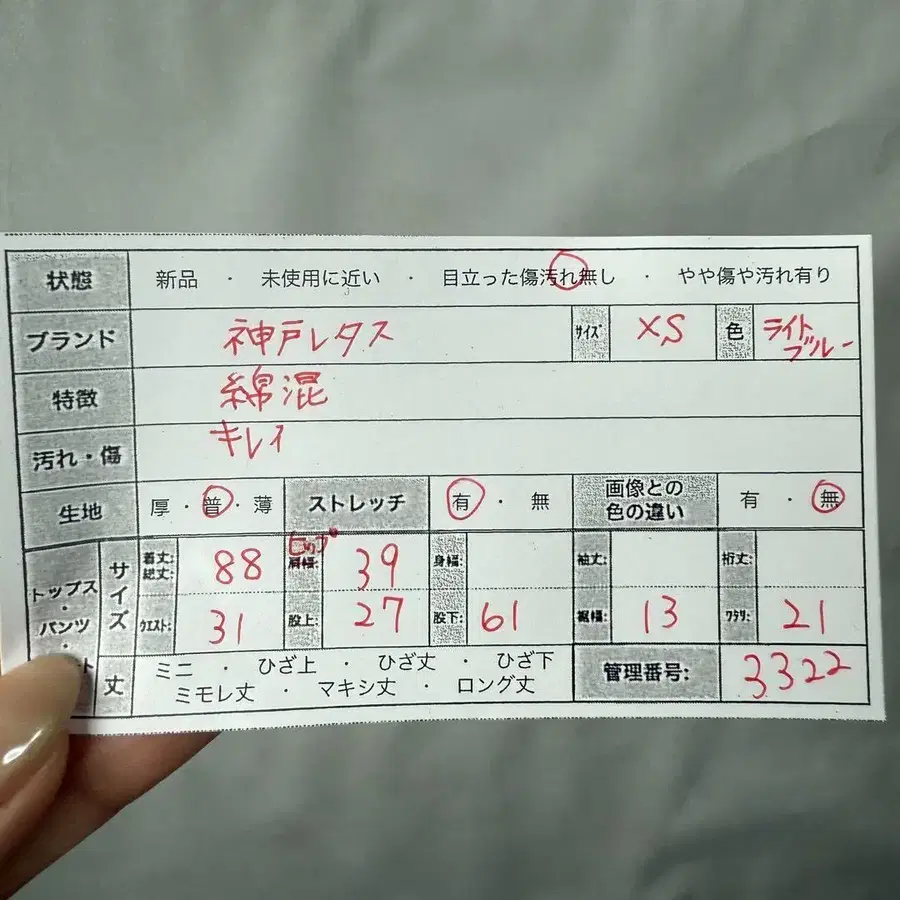 状態 新品 ・ 未使用に近い ・ 目立った傷汚れ無し ・ やや傷や汚れ有り
ブランド 神戸レタス サイズ XS 色 ライトブルー
特徴 綿混
汚れ・傷 キレイ
生地 厚・普・薄 ストレッチ 有・無 画像との色の違い 有・無
トップス・パンツ・ サイズ 着丈: 総丈: 88 ヒップ 肩幅: 39 身幅: 袖丈: 裄丈:
ウエスト: 31 股上: 27 股下: 61 裾幅: 13 ワタリ: 21
丈 ミニ ・ ひざ上 ・ ひざ丈 ・ ひざ下
ミモレ丈 ・ マキシ丈 ・ ロング丈 管理番号: 3322